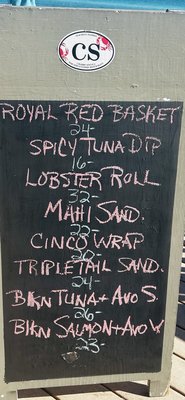 CS
ROYAL RED BASKET
24-
SPICY TUNA DIP
16-
LOBSTER ROLL
32-
MAHI SAND.
22-
CINCO WRAP
20-
TRIPLETAIL SAND.
24-
BLKN TUNA + AVO S.
26-
BLKN SALMON + AVO W.
23-